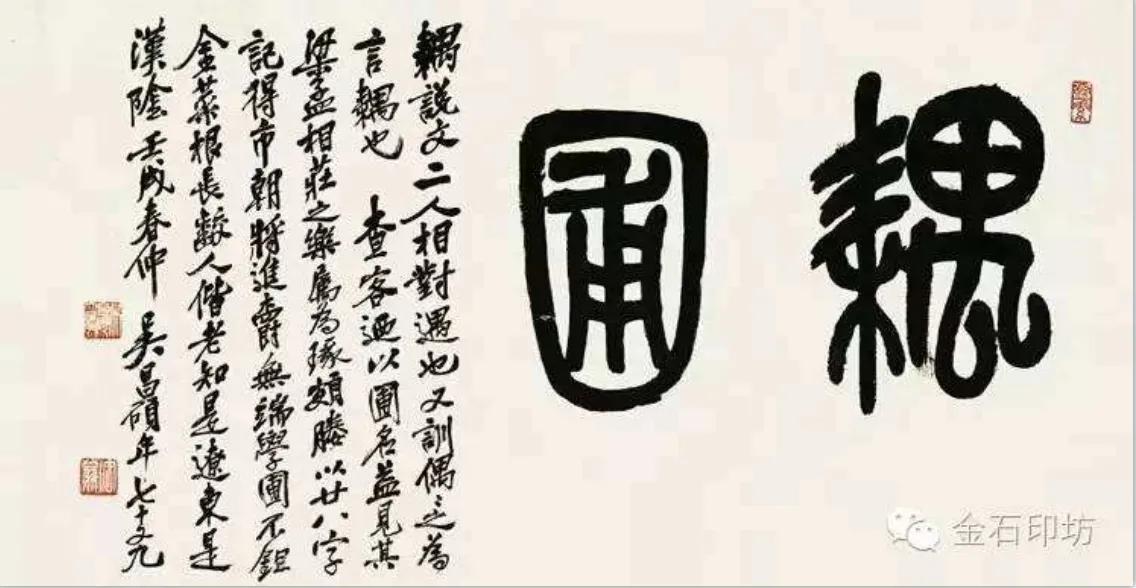 耦圃
耦說文二人相對遇也又訓偶偶之為
言耦也 查客迺以圃名益見其
梁孟相莊之樂屬為琢頗賸以廿八字
記得市朝將進爵無端學圃不鉏
金菜根長齩人偕老知是遼東是
漢陰壬戌春仲 吳昌碩年七十九
金石印坊